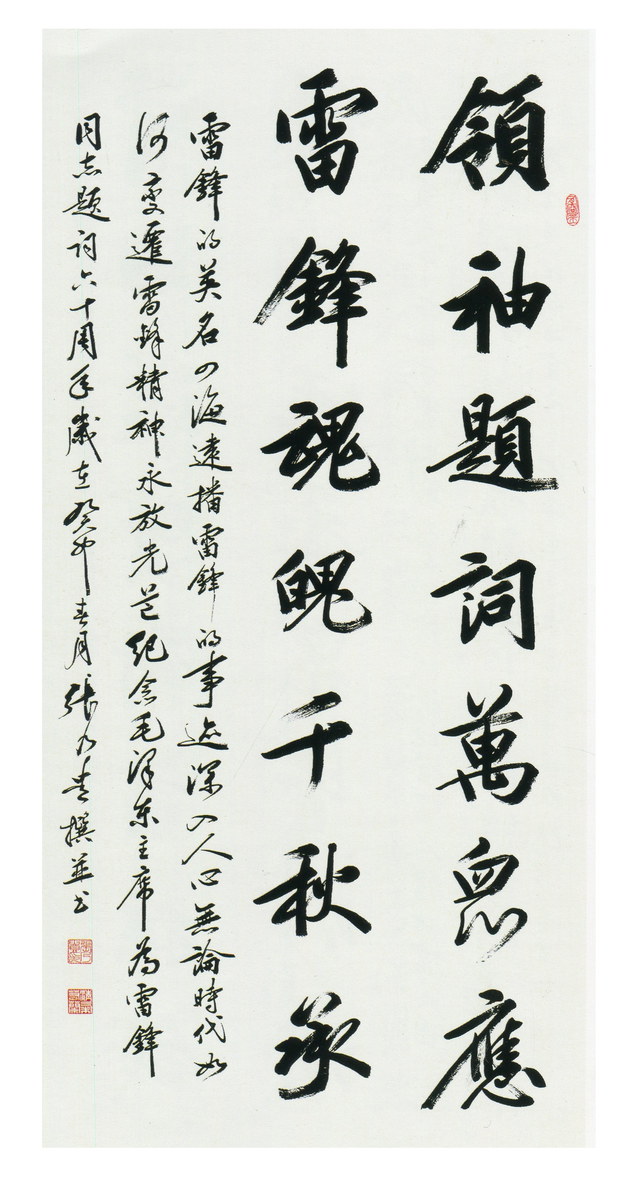 領袖題詞萬眾應
雷鋒魂魄千秋承
雷鋒的英名四海遠播雷鋒的事迹深入人心無論時代如
何變遷雷鋒精神永放光芒紀念毛澤東主席為雷鋒
同志題詞六十周年歲在癸卯春月張乃貴撰並书